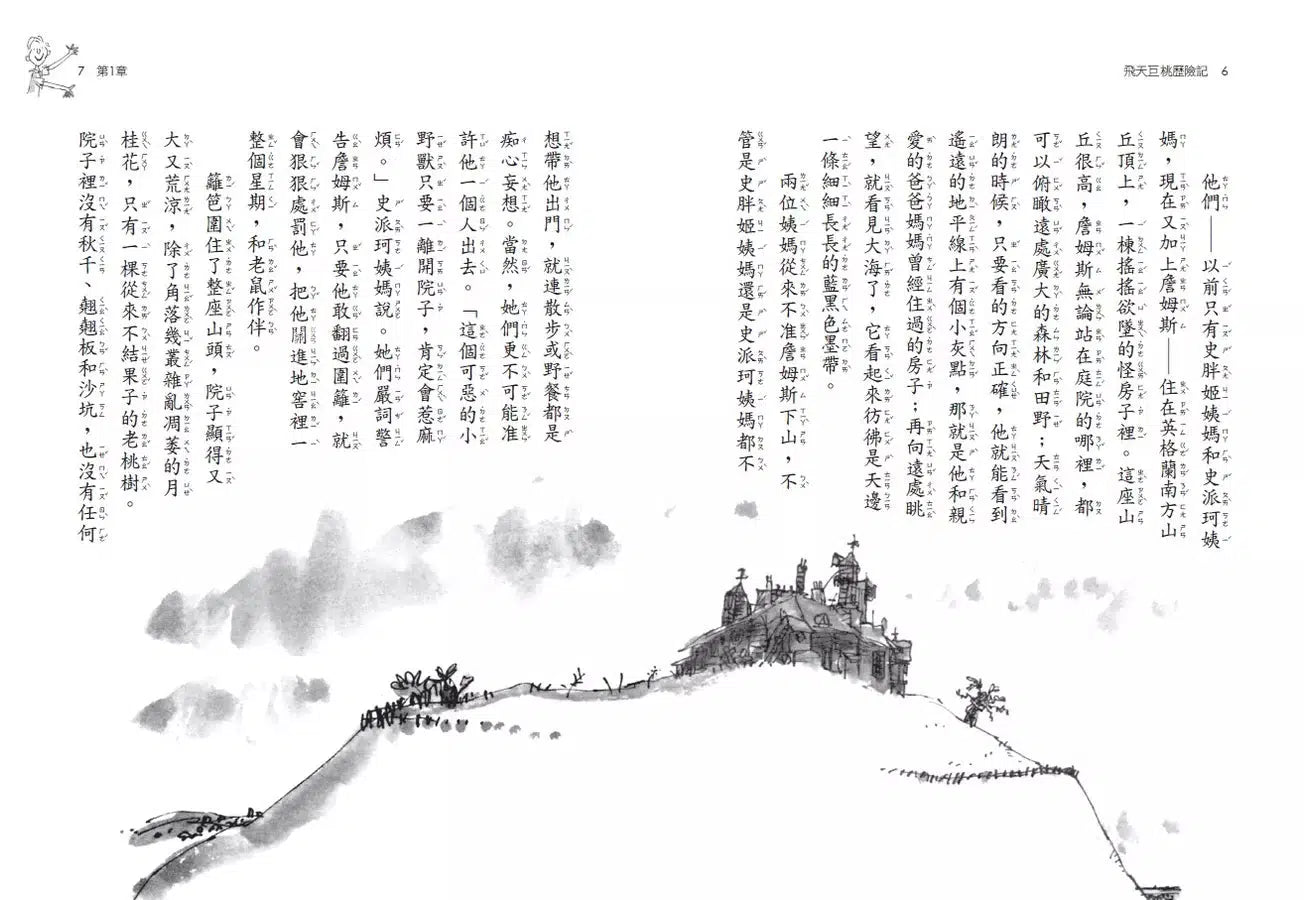 飛天巨桃歷險記 6
他們——以前只有史胖姬姨媽和史派珂姨
媽，現在又加上詹姆斯——住在英格蘭南方山
丘頂上，一棟搖搖欲墜的怪房子裡。這座山
丘很高，詹姆斯無論站在庭院的哪裡，都
可以俯瞰遠處廣大的森林和田野；天氣晴
朗的時候，只要看的方向正確，他就能看到
遙遠的地平線上有個小灰點，那就是他和親
愛的爸爸媽媽曾經住過的房子；再向遠處眺
望，就看見大海了，它看起來彷彿是天邊
一條細細長長的藍黑色墨帶。
兩位姨媽從來不准詹姆斯下山，不
管是史胖姬姨媽還是史派珂姨媽都不
7 第1章
想帶他出門，就連散步或野餐都是
痴心妄想。當然，她們更不可能准
許他一個人出去。「這個可惡的小
野獸只要一離開院子，肯定會惹麻
煩。」史派珂姨媽說。她們嚴詞警
告詹姆斯，只要他敢翻過圍籬，就
會狠狠處罰他，把他關進地窖裡一
整個星期，和老鼠作伴。
籬笆圍住了整座山頭，院子顯得又
大又荒涼，除了角落幾叢雜亂凋萎的月
桂花，只有一棵從來不結果子的老桃樹。
院子裡沒有秋千、翹翹板和沙坑，也沒有任何